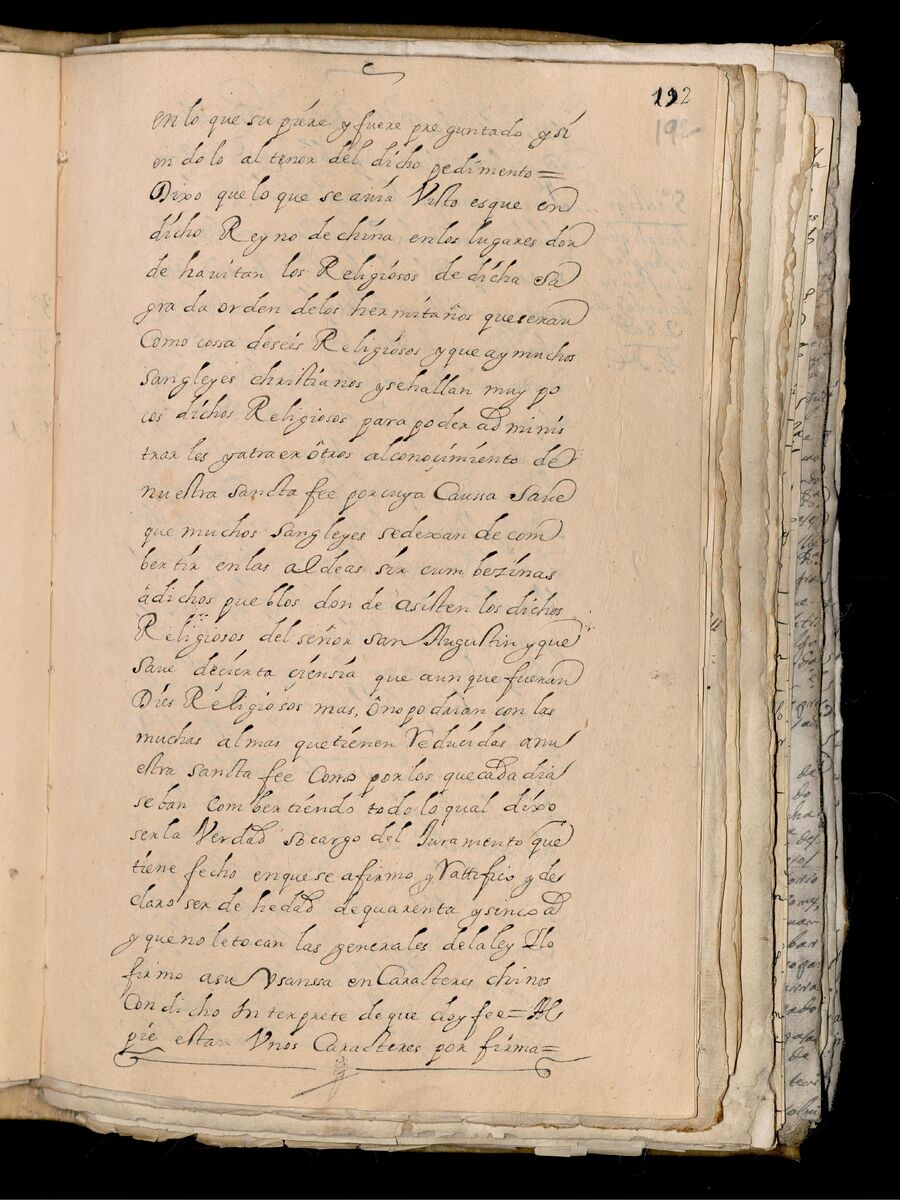 192
192
en lo que supiere y fuere preguntado y si
en dolo al tenor del dicho pedimento =
Dixo que lo que se avia Visto es que en
dicho Reyno de china en los lugares don
de havitan los Religiosos de dicha Sa
grada orden de los hermitaños que seran
Como cossa de seis Religiosos y que ay muchos
Sangleyes christianos y se hallan muy po
cos dichos Religiosos para poder adminis
trar les y atraer òtros al conoçimiento de
nuestra Sancta fee por cuya Caussa Save
que muchos Sangleyes se dexan de com
bertir en las aldeas sir cum bezinas
à dichos pueblos don de asisten los dichos
Religiosos del señor san Augustin y que
Save de cierta çiensia que aun que fueran
Dies Religiosos mas, ô no podrian con las
muchas almas que tienen Reducidas a nu
estra Sancta fee Como por los que cada dia
se ban combertiendo todo lo qual dixo
ser la Verdad so cargo del Juramento que
tiene fecho en que se afirmo y Rattifico y de
claro ser de hedad de quarenta y sinco ad
y que no le tocan las generales de la ley Y lo
firmo a su Vsansa en Caracteres chinos
Con dicho Interprete de que doy fee = Al
pie estan Vnos Caracteres por firma =